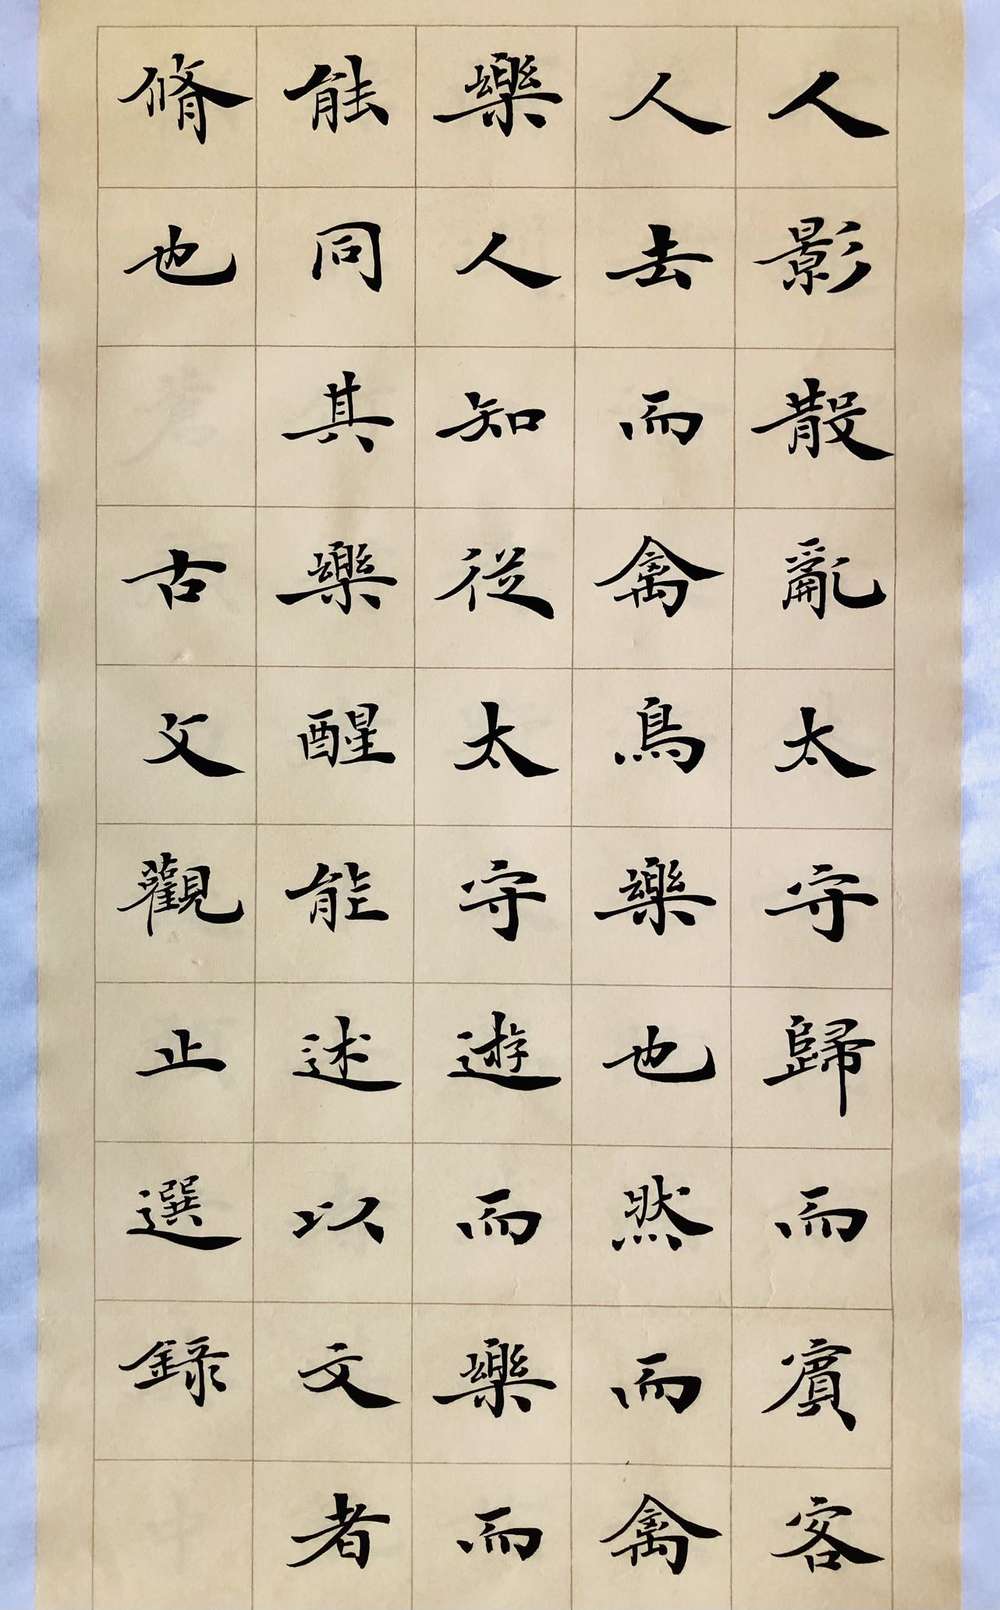 人影散亂太守歸而賓客
人去而禽鳥樂也然而禽
樂人知從太守遊而樂而
能同其樂醒能述以文者
脩也 古文觀止選錄